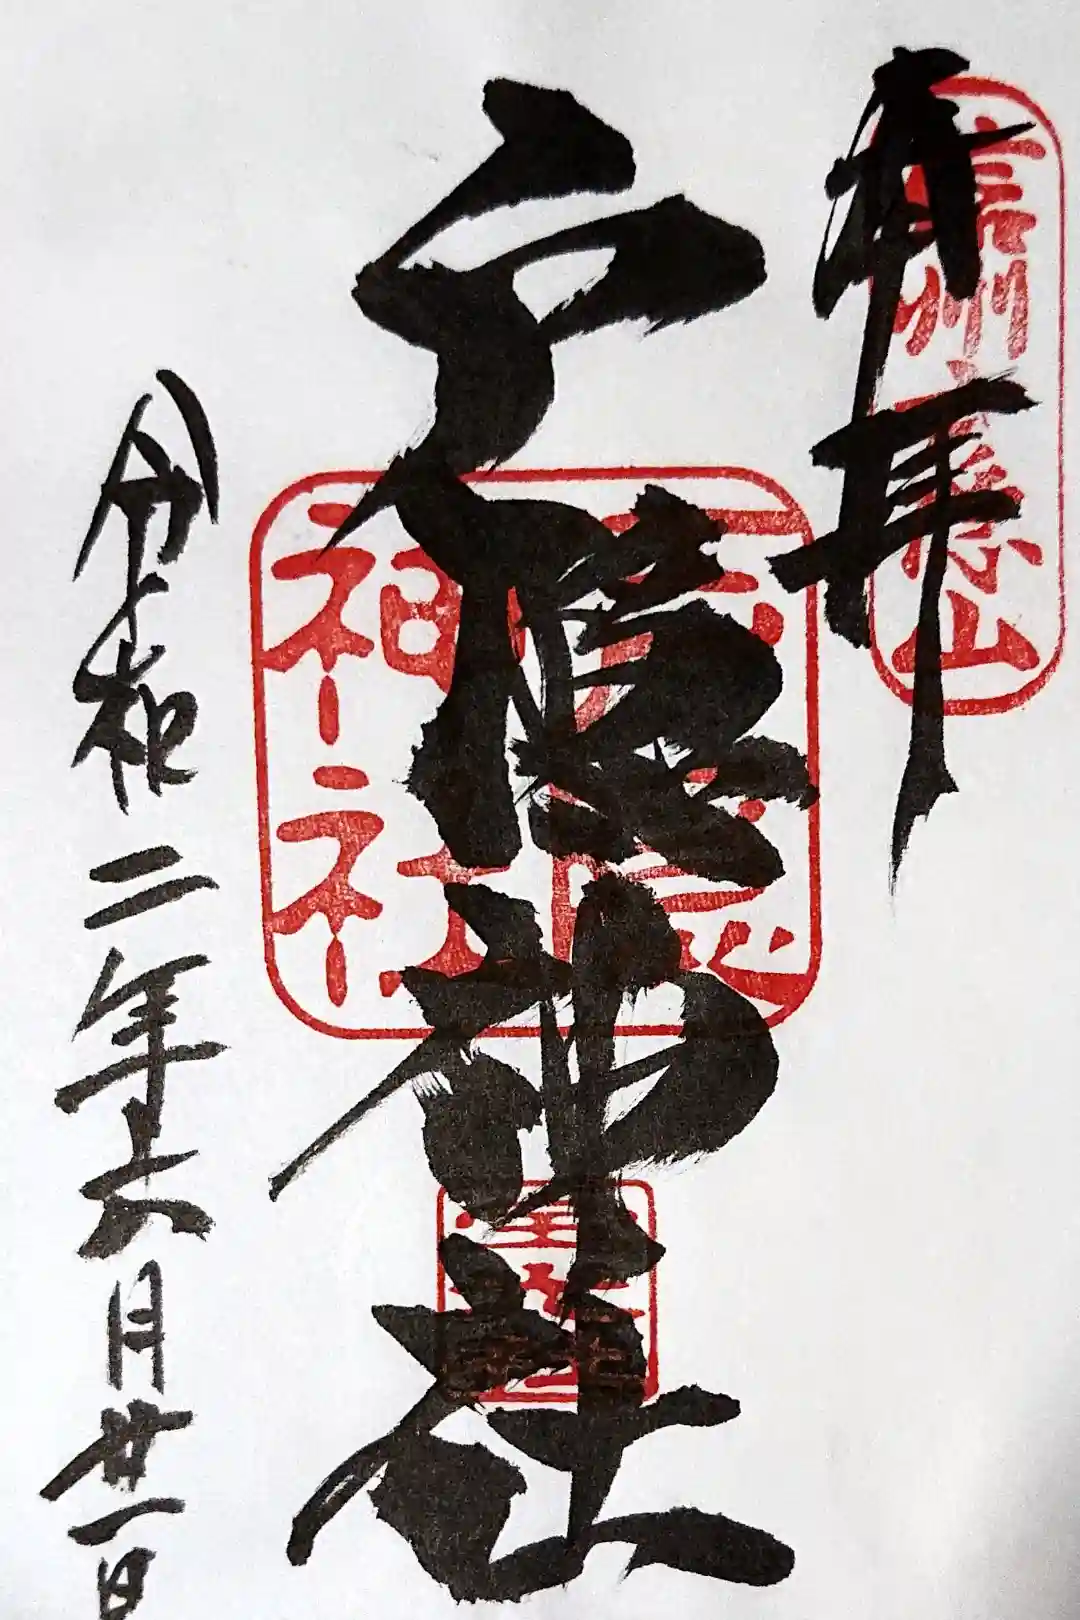 奉拝
信州戸隠山
戸隠神社
戸隠
神社
令和二年六月廿一日